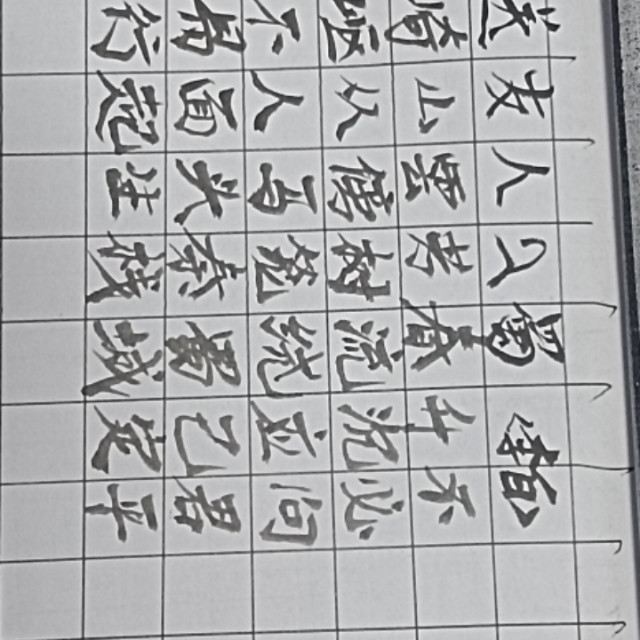 送友人入蜀 李白
崎嶇不易行
山从人面起
雲傍马头生
芳树笼秦栈
春流绕蜀城
升沉应已定
不必问君平